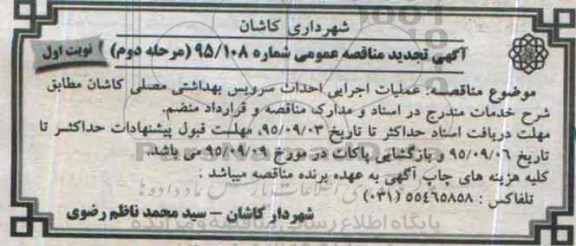 شهرداری کاشان
آگهی تجدید مناقصه عمومی شماره ۹۵/۱۰۸ (مرحله دوم) نوبت اول
موضوع مناقصه: عملیات اجرایی احداث سرویس بهداشتی مصلی کاشان مطابق
شرح خدمات مندرج در اسناد و مدارک مناقصه و قرارداد منضم.
مهلت دریافت اسناد حداکثر تا تاریخ ۹۵/۰۹/۰۳، مهلت قبول پیشنهادات حداکثر تا
تاریخ ۹۵/۰۹/۰۶ و بازگشایی پاکات در مورخ ۹۵/۰۹/۰۹ می باشد.
کلیه هزینه های چاپ آگهی به عهده برنده مناقصه میباشد :
تلفاکس : ۵۵۴۶۵۸۵۸ (۰۳۱)
شهردار کاشان – سید محمد ناظم رضوی
پایگاه اطلاع رسانی مناقصه و مزایده